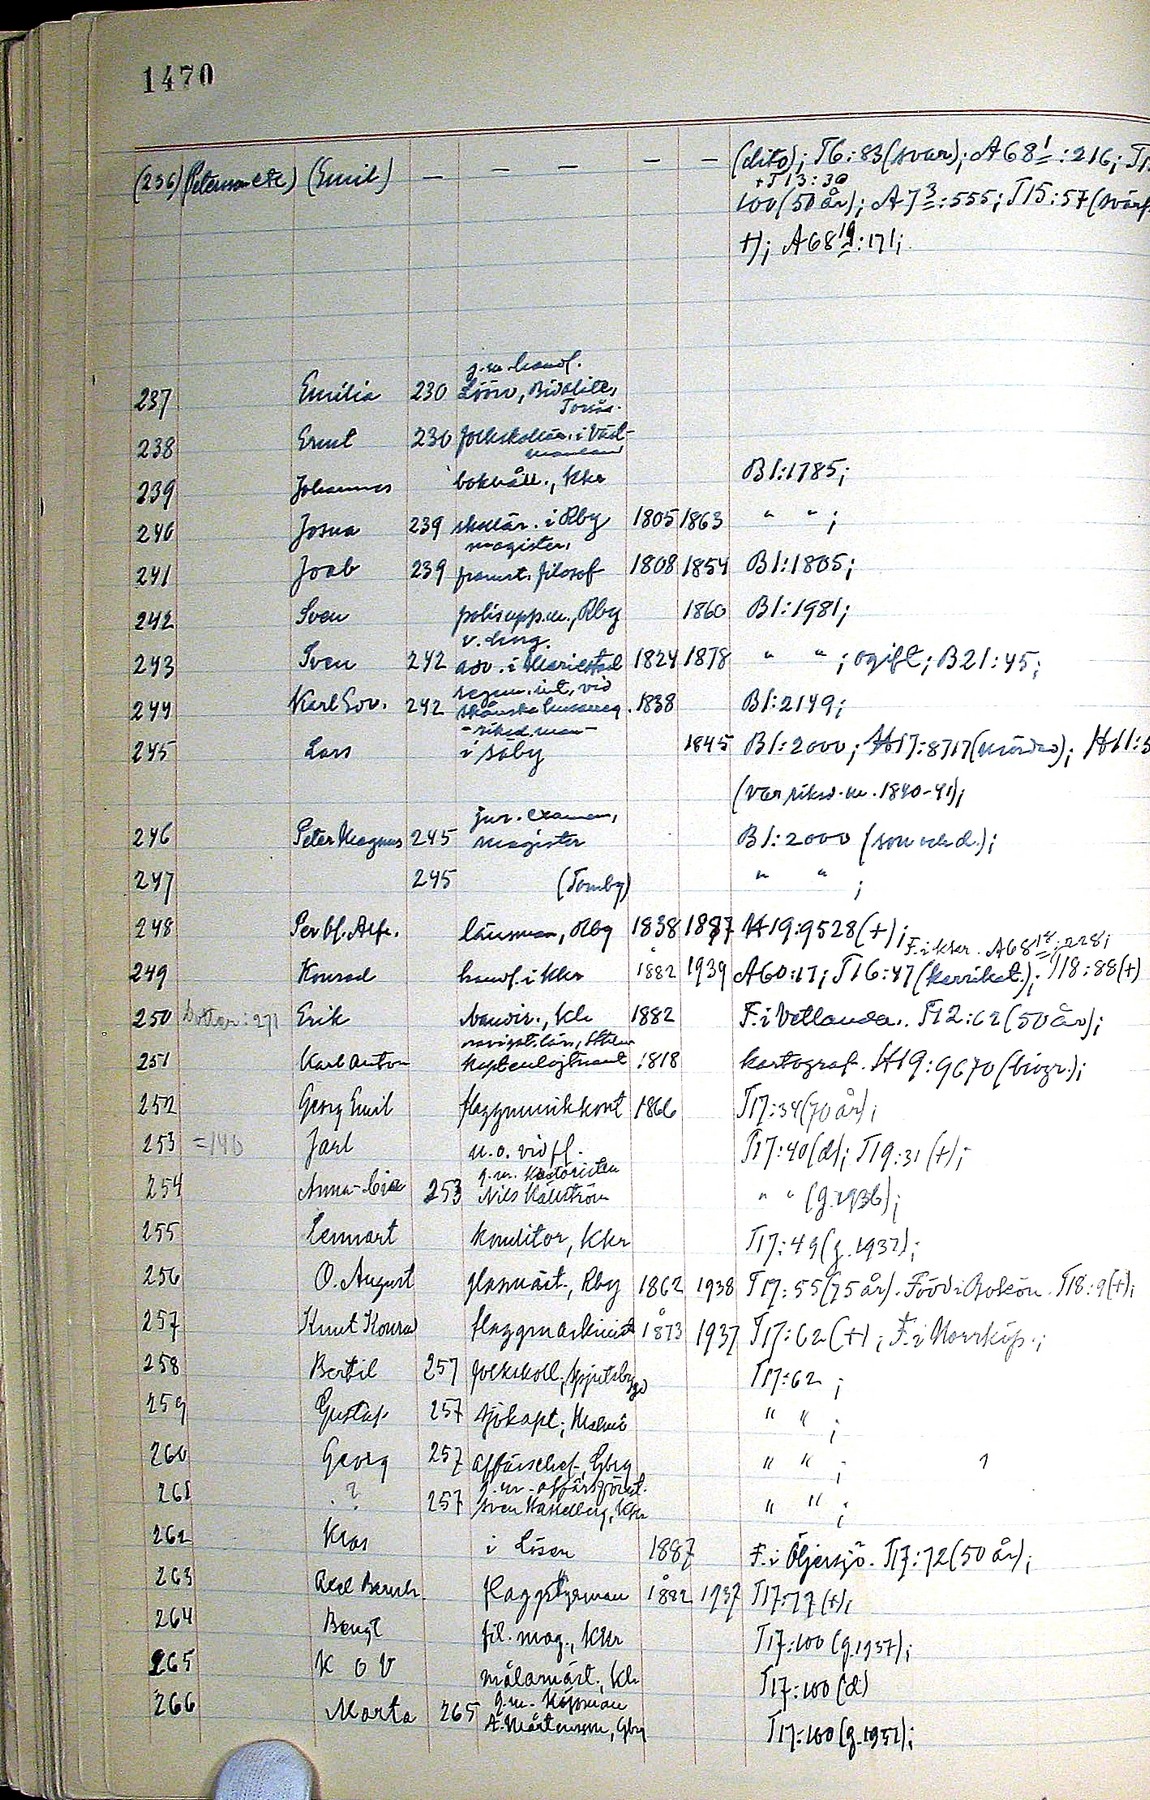 1470
(236) (Petersson etc) (Emil) — — — — — (dito); T6:83 (svar); A68 1:216; T1
+T13:30
100 (50 år); A7 3:555; T15:57
+); A68 19:171;
g.m. handl.
237 Emilia 230 Löön,
Torsås.
238 Ernst 230 folkskollär. i Väst-
manland
239 Johannes bokhåll., Kkr B1:1785;
240 Josua 239 skollär. i Rby 1805 1863 " " ;
magister,
241 Joab 239 framst. filosof 1808 1854 B1:1805;
242 Sven polisuppm., Rby 1860 B1:1981;
v. häng.
243 Sven 242 adv. i Mariestad 1824 1878 " " ; ogift; B21:45;
regem.int. vid
244 Karl Gov. 242 skånska husarreg. 1838 B1:2149;
- riksd.man -
245 Lars i Säby 1845 B1:2000; H17:8717 (mördad); H11:5
(var riksd.m. 1840-41);
jur. examen,
246 Peter Magnus 245 magister B1:2000 (son och d.);
247 245 (Tomby) " " ;
248 Per Ol. Alfr. länsman, Rby 1838 1887 H19:9528 (+);
F. i Kkr. A68 18:228;
249 Konrad handl. i Kkr 1882 1939 A60:17; T16:47 (karrikat.); T18:88 (+)
250 Dotter: 271 Erik kamr., Kh 1882 F. i Vetlanda. T12:62 (50 år);
navigat.lär., Sthlm
251 Karl Anton kaptenlöjtnant 1818 kartograf. H19:9670 (biogr.);
252 Georg Emil flaggmusikkont 1866 T17:34 (70 år);
253 =140 Jarl u.o. vid fl. T17:40 (d); T19:31 (+);
g.m. kantoristen
254 Anna-Lisa 253 Nils Källström " " (g. 1936);
255 Lennart konditor, Kkr T17:49 (g. 1937);
256 O. August glasmäst., Rby 1862 1938 T17:55 (75 år). Född i Bokön. T18:9 (+);
257 Knut Konrad flaggmaskinist 1873 1937 T17:62 (+); F. i Norrköp.;
258 Bertil 257 folkskoll., Spjutsbygd T17:62 ;
259 Gustaf 257 sjökapt., Malmö " " ;
260 Georg 257 affärschef, Gbrg " " ;
g.m. affärsföret.
261 ? 257 Sven Hasselberg, Kkr " " ;
262 Klas i Lösen 1887 F. i Öljersjö. T17:72 (50 år);
263 Axel Bernh. flaggstyrman 1882 1937 T17:77 (+);
264 Bengt fil. mag., Kkr T17:100 (g. 1937);
265 K O V målarmäst., Kh T17:100 (d)
g.m. köpman
266 Marta 265 A. Mårtensson, Gbrg T17:100 (g. 1937);